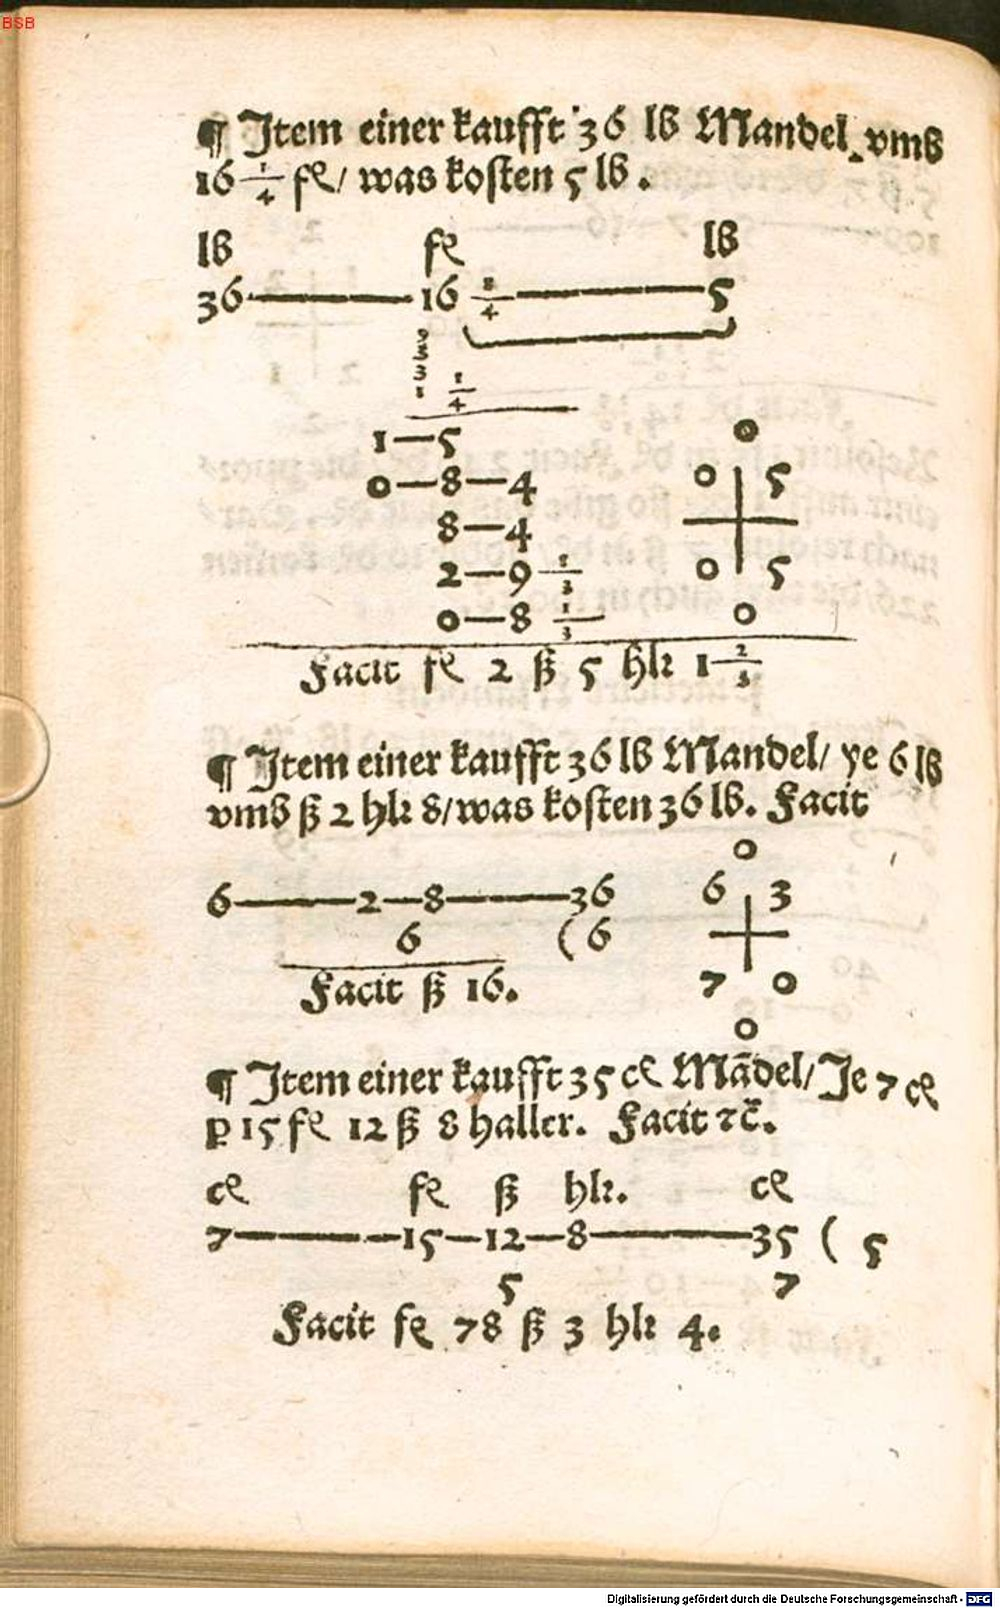 BSB
¶ Item einer kaufft 36 lb Mandel vmb
16 1/4 fl/ was kosten 5 lb.
lb fl lb
36 — 16 1/4 — 5
3
3
3
1 1/4
1—5 0
0—8—4 0 5
8—4
2—9 1/3 0 5
0—8 1/3 0
Facit fl 2 ß 5 hlr 1 2/3
¶ Item einer kaufft 36 lb Mandel/ ye 6 lb
vmb ß 2 hlr 8/ was kosten 36 lb. Facit
0
6 — 2—8 — 36 6 3
6 (6
Facit ß 16. 7 0
0
¶ Item einer kaufft 35 ct Mādel/ Je 7 ct
p 15 fl 12 ß 8 haller. Facit ⁊c̄.
ct fl ß hlr. ct
7 — 15—12—8 — 35 ( 5
5 7
Facit fl 78 ß 3 hlr 4.
Digitalisierung gefördert durch die Deutsche Forschungsgemeinschaft - DFG